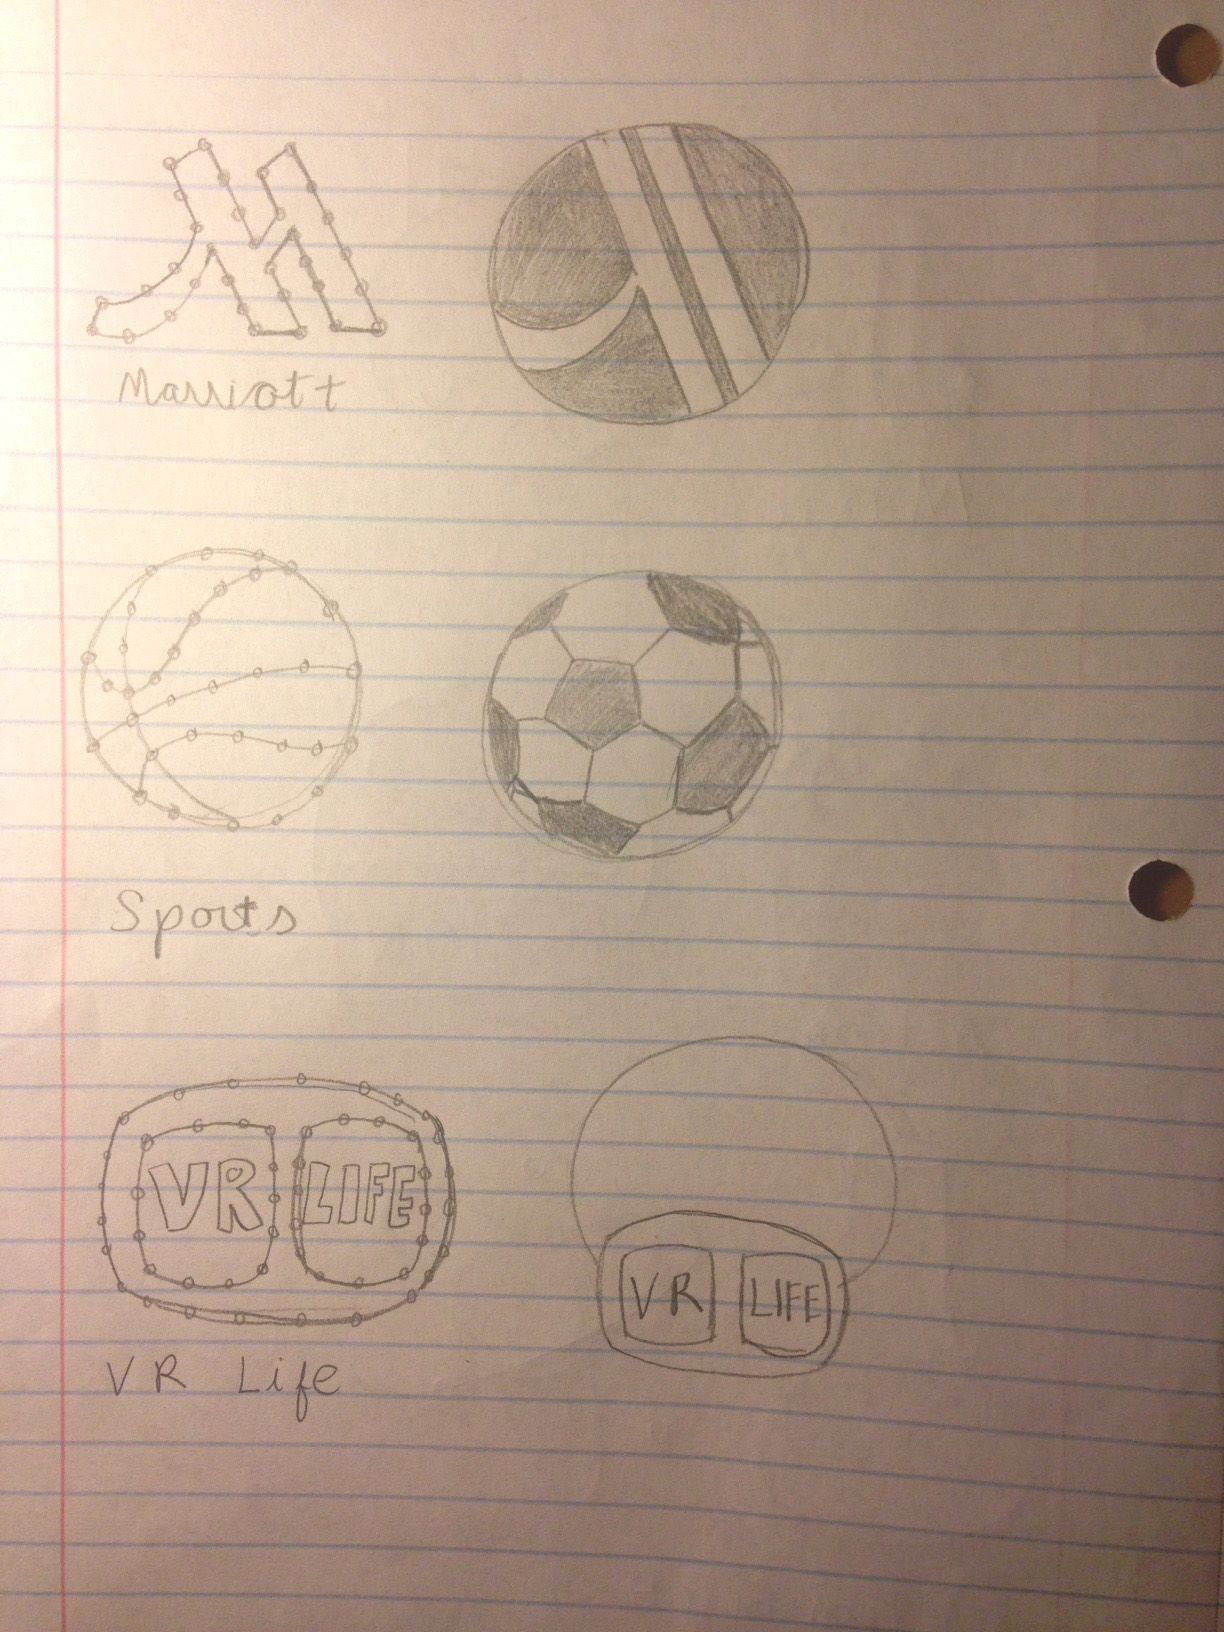 Marriott
Sports
VR LIFE
VR LIFE
VR Life